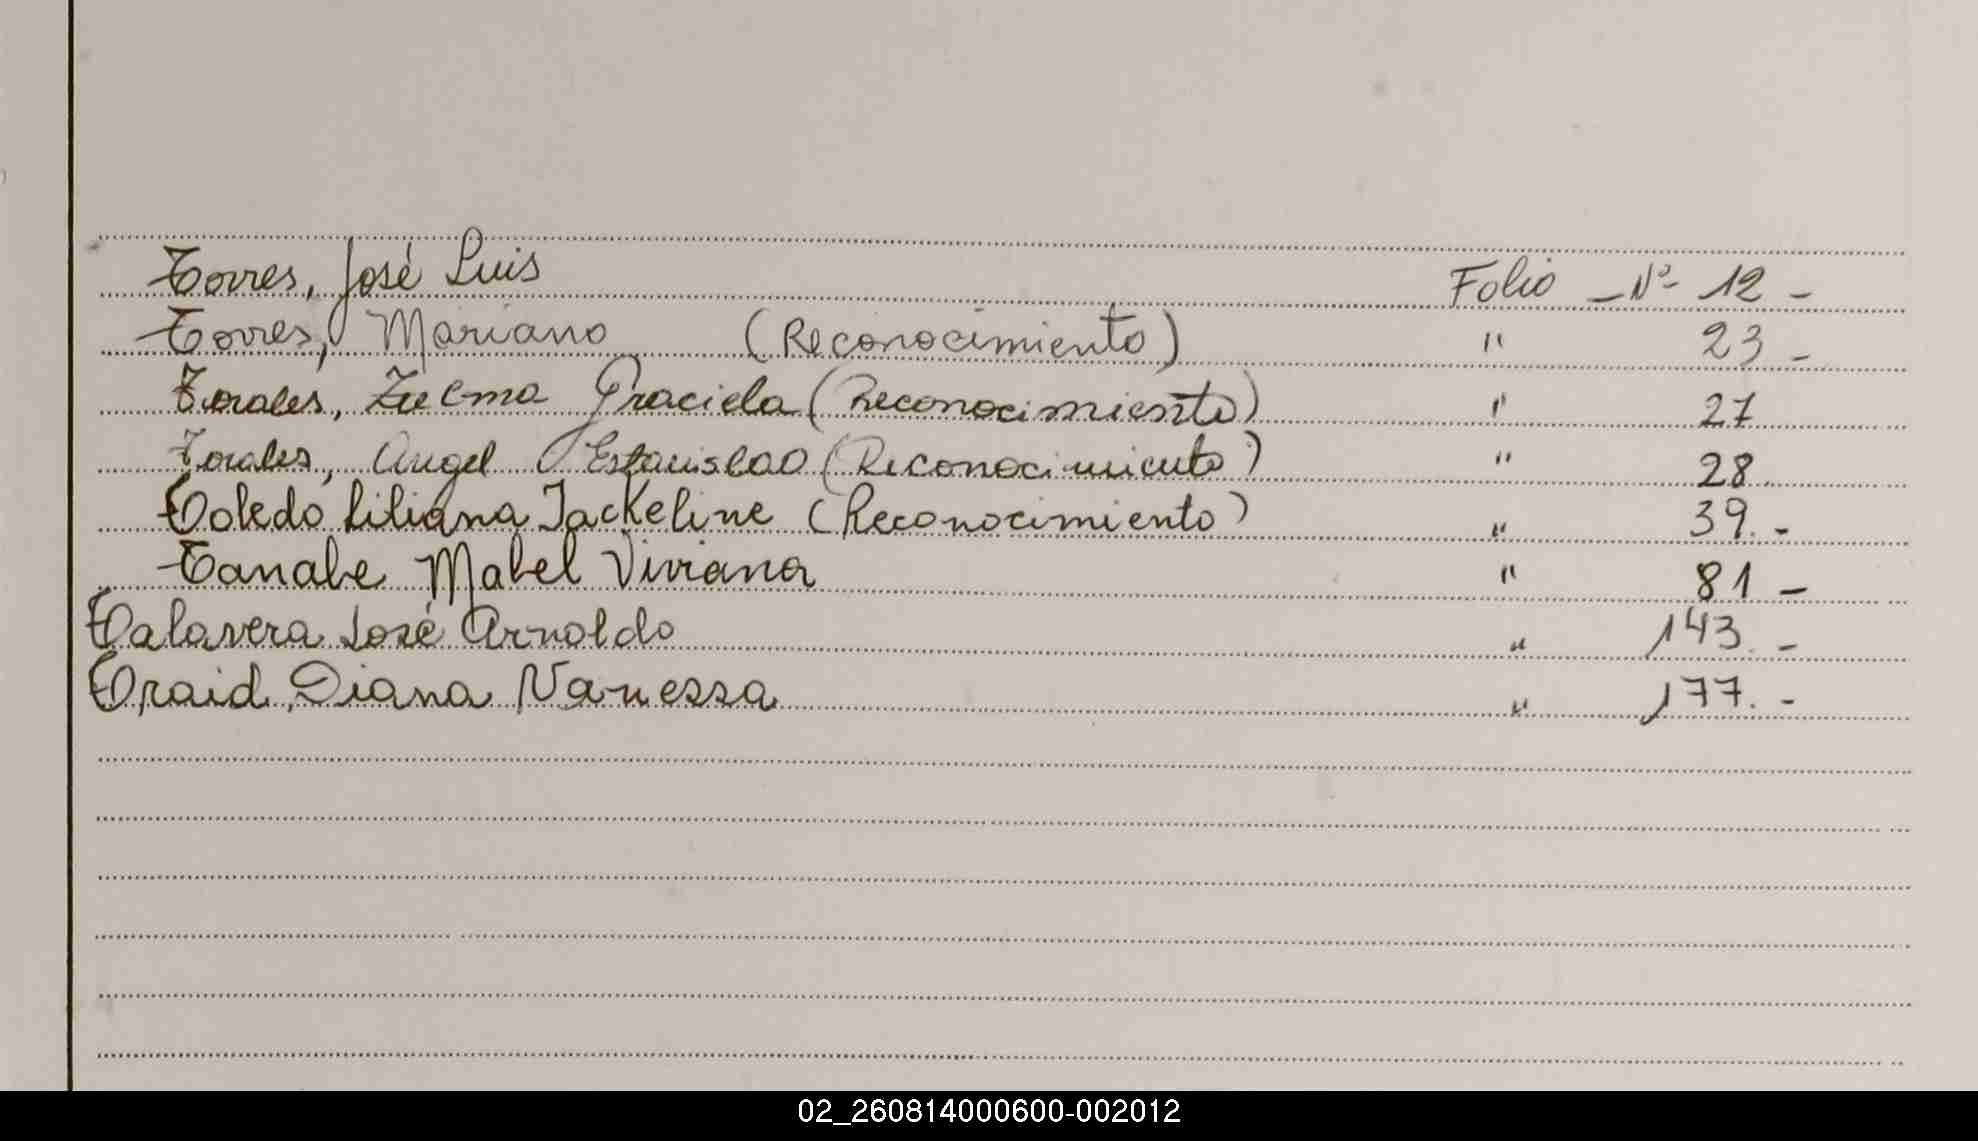 Torres, José Luis Folio - Nº 12 -
Torres, Mariano (Reconocimiento) " 23 -
Torales, Zulma Graciela (Reconocimiento) " 27
Torales, Angel Estanislao (Reconocimiento) " 28
Toledo Liliana Jackeline (Reconocimiento) " 39. -
Tanabe Mabel Viviana " 81 -
Talavera José Arnoldo " 143. -
Traid Diana Vanessa " 177. -
02_260814000600-002012